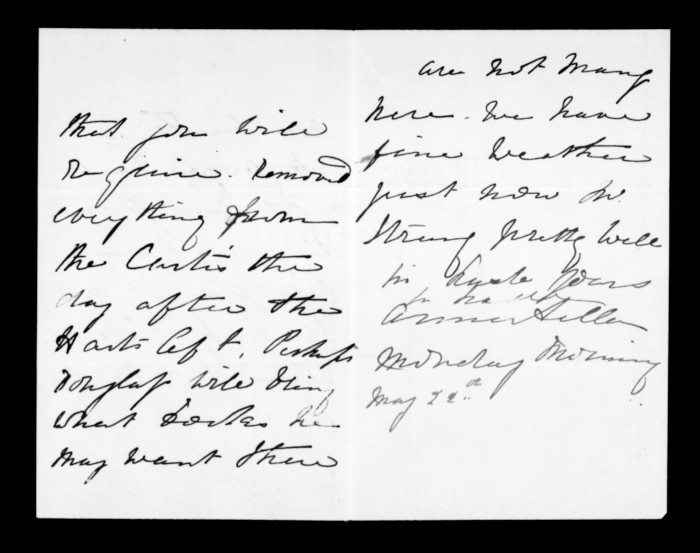 that you will
require. Removed
everything from
the Curtis the
day after the
Harts left, Perhaps
Douglass will bring
what books he
may want there
are not many
here. we have
fine weather
just now Mr.
Strang pretty well
in haste yours
Monday Morning
May 22nd